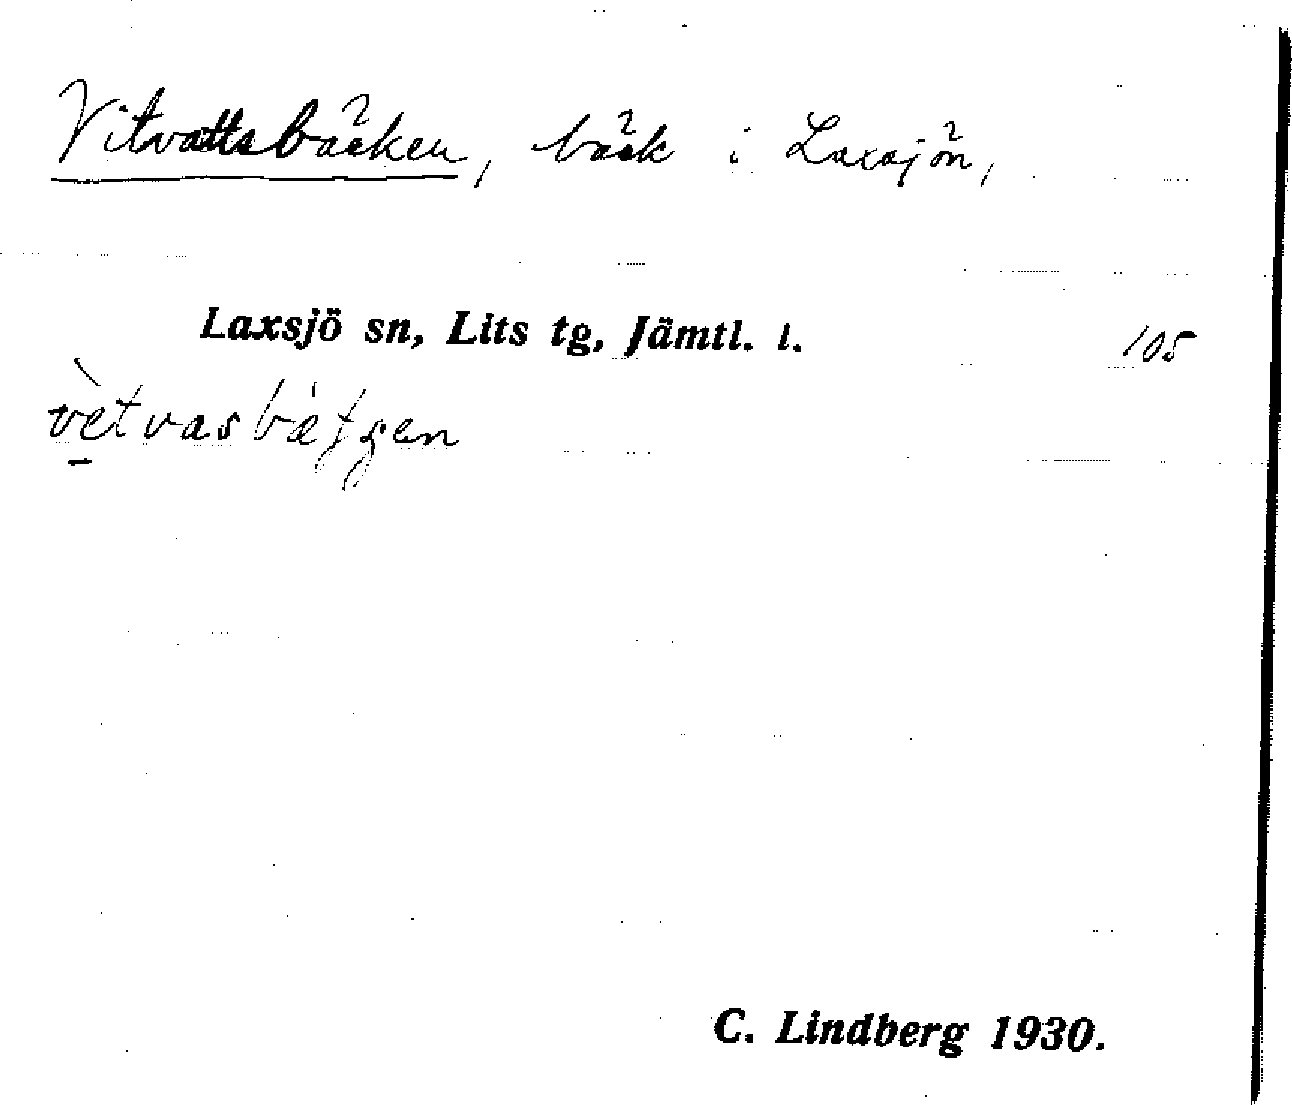 Vitvattsbäcken, bäck i Laxsjön,
Laxsjö sn, Lits tg, Jämtl. l.
105
vètvasbætʃen
C. Lindberg 1930.